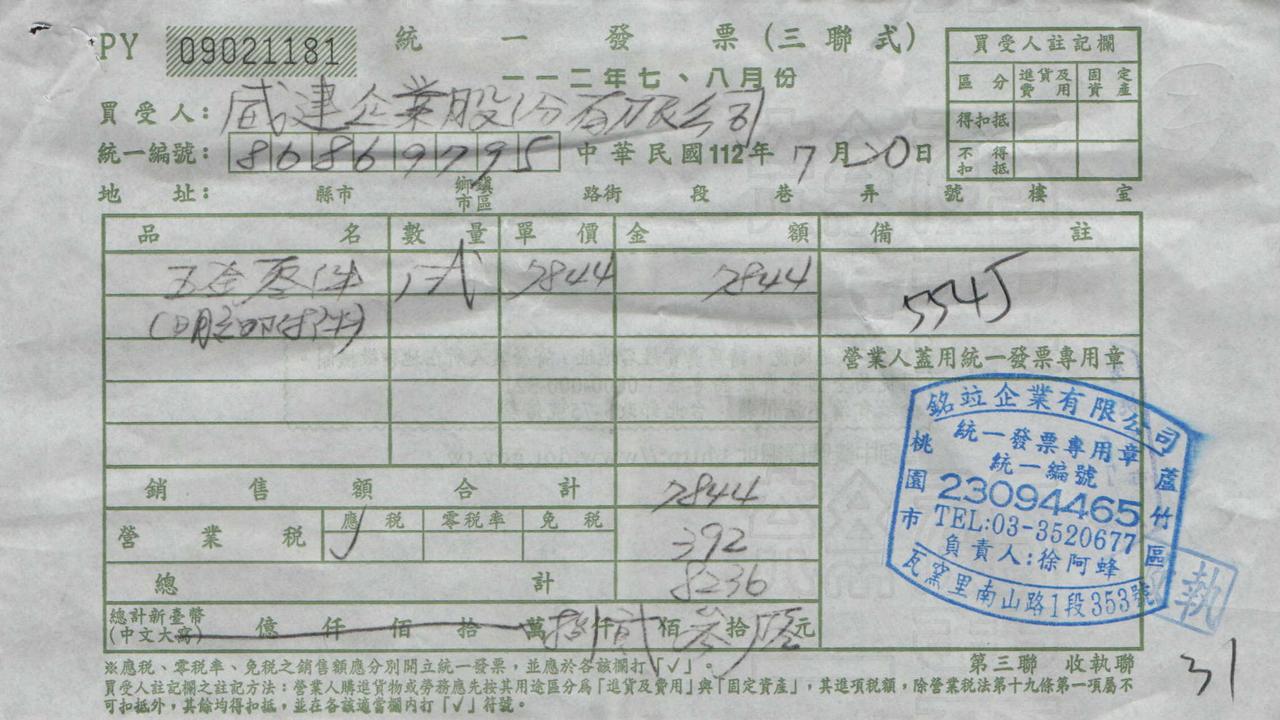 PY 09021181 統一發票(三聯式)
一一二年七、八月份
買受人: 威建企業股份有限公司
統一編號: 86869795 中華民國112年7月20日
地址: 縣市 鄉鎮市區 路街 段 巷 弄 號 樓 室
買受人註記欄
區分 進貨及費用 固定資產
得扣抵
不得扣抵
品名 數量 單價 金額 備註
五金零件 1式 7844 7844 5545
營業人蓋用統一發票專用章
銷售額合計 7844
營業稅 應稅 零稅率 免稅 392
總計 8236
總計新臺幣
(中文大寫) 億 仟 佰 拾 萬 捌仟貳佰參拾陸元
銘竝企業有限公司
統一發票專用章
統一編號
23094465
TEL:03-3520677
負責人:徐阿蜂
桃園市
蘆竹區
瓦窯里南山路1段353號
執
※應稅、零稅率、免稅之銷售額應分別開立統一發票,並應於各該欄打「✓」。
第三聯 收執聯
買受人註記欄之註記方法:營業人購進貨物或勞務應先按其用途區分為「進貨及費用」與「固定資產」,其進項稅額,除營業稅法第十九條第一項屬不
可扣抵外,其餘均得扣抵,並在各該適當欄內打「✓」符號。
31